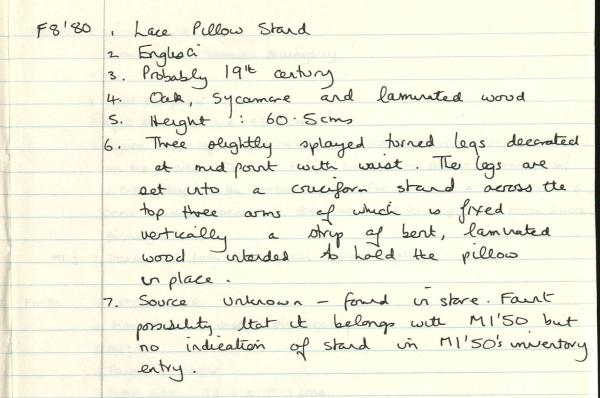 F8'80 1. Lace Pillow Stand
2. English
3. Probably 19th century
4. Oak, sycamore and laminated wood
5. Height : 60.5cms
6. Three slightly splayed turned legs decorated
at mid point with waist. The legs are
set into a cruciform stand across the
top three arms of which is fixed
vertically a strip of bent, laminated
wood intended to hold the pillow
in place.
7. Source unknown – found in store. Faint
possibility that it belongs with M1'50 but
no indication of stand in M1'50's inventory
entry.